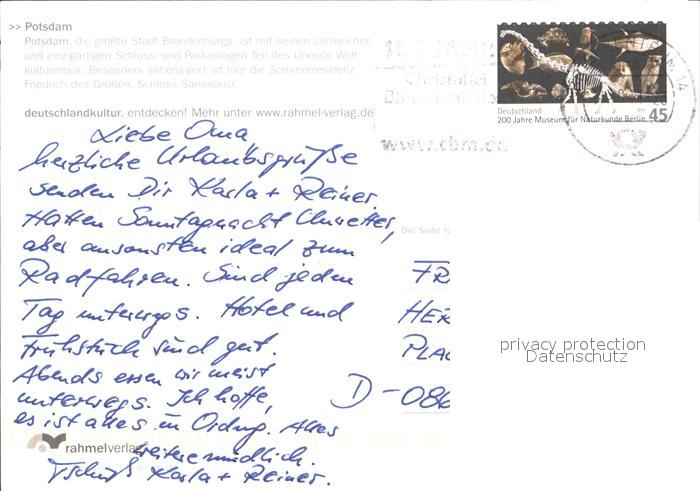 >> Potsdam
Potsdam, die größte Stadt Brandenburgs, ist mit seinen zahlreichen
und einzigartigen Schloss- und Parkanlagen Teil des Unesco Welt
kulturerbes. Besonders sehenswert ist hier die Sommerresidenz
Friedrich des Großen, Schloss Sanssouci.
deutschlandkultur. entdecken! Mehr unter www.rahmel-verlag.de
Liebe Oma
herzliche Urlaubsgrüße
senden Dir Karla + Reiner.
Hatten Sonntagnacht Unwetter,
aber ansonsten ideal zum
Radfahren. Sind jeden
Tag unterwegs. Hotel und
Frühstück sind gut.
Abends essen wir meist
unterwegs. Ich hoffe,
es ist alles in Ordng. Alles
weitere mündlich.
Tschüß Karla + Reiner.
rahmelverlag
Christoffel
www.cbm.de
Deutschland
200 Jahre Museum für Naturkunde Berlin
45
14
Die Seite fü
FR
HER
PLAU
D-086
privacy protection
Datenschutz